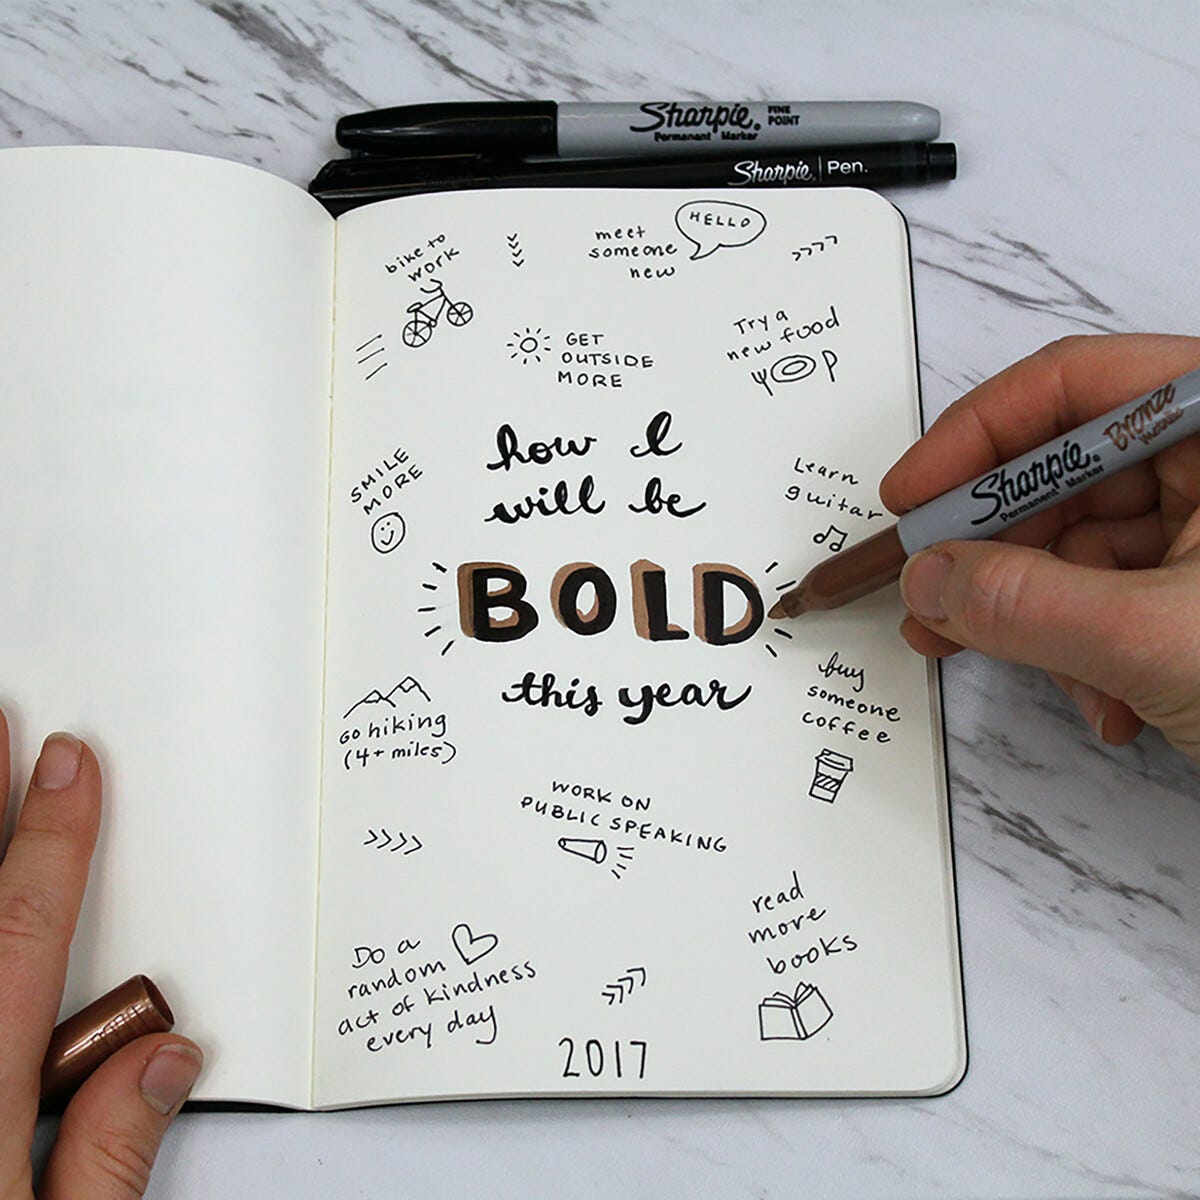 Sharpie. FINE
POINT
Permanent Marker
Sharpie. Pen.
bike to
work
meet
someone
new
HELLO
GET
OUTSIDE
MORE
Try a
new food
how I
will be
BOLD
this year
SMILE
MORE
Learn
guitar
Sharpie. Bronze
Permanent Marker Metallic
go hiking
(4+ miles)
buy
someone
coffee
WORK ON
PUBLIC SPEAKING
Do a
random
act of kindness
every day
read
more
books
2017